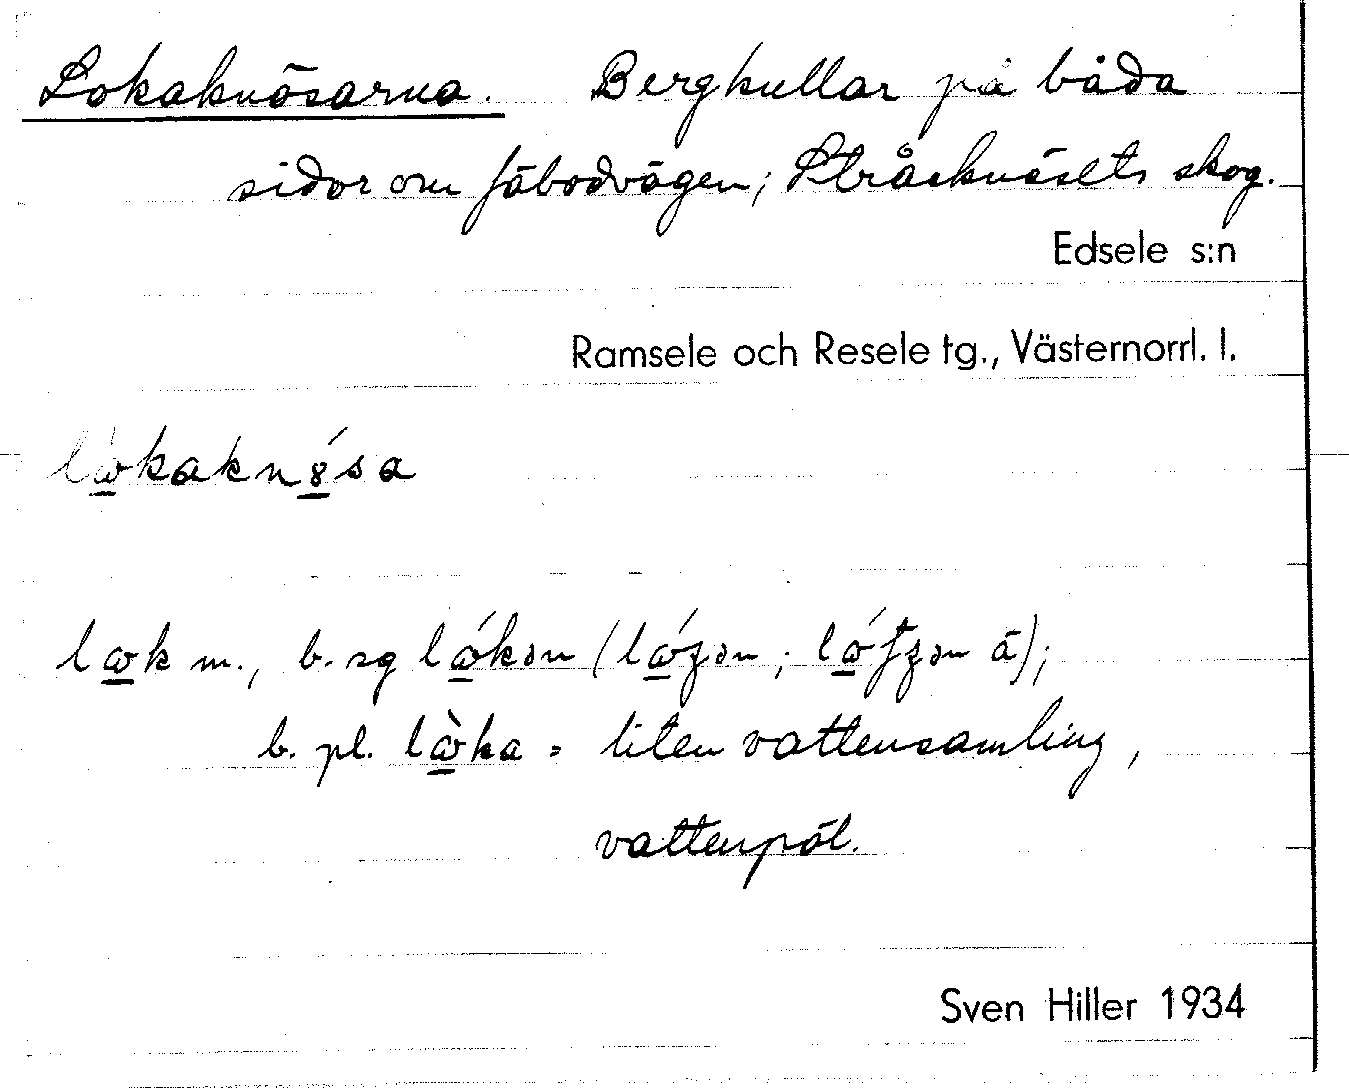 Lokaknösarna. Bergkullar på båda
sidor om fäbodvägen; Stråsknäsets skog.
Edsele s:n
Ramsele och Resele tg., Västernorrl. l.
lὼ̲kaknȣ̲́sa
lω̲k m., b. sg lώ̲kən (lώ̲ʒən ; lώ̲tʒən ä);
b. pl. lὼ̲ka = liten vattensamling,
vattenpöl.
Sven Hiller 1934